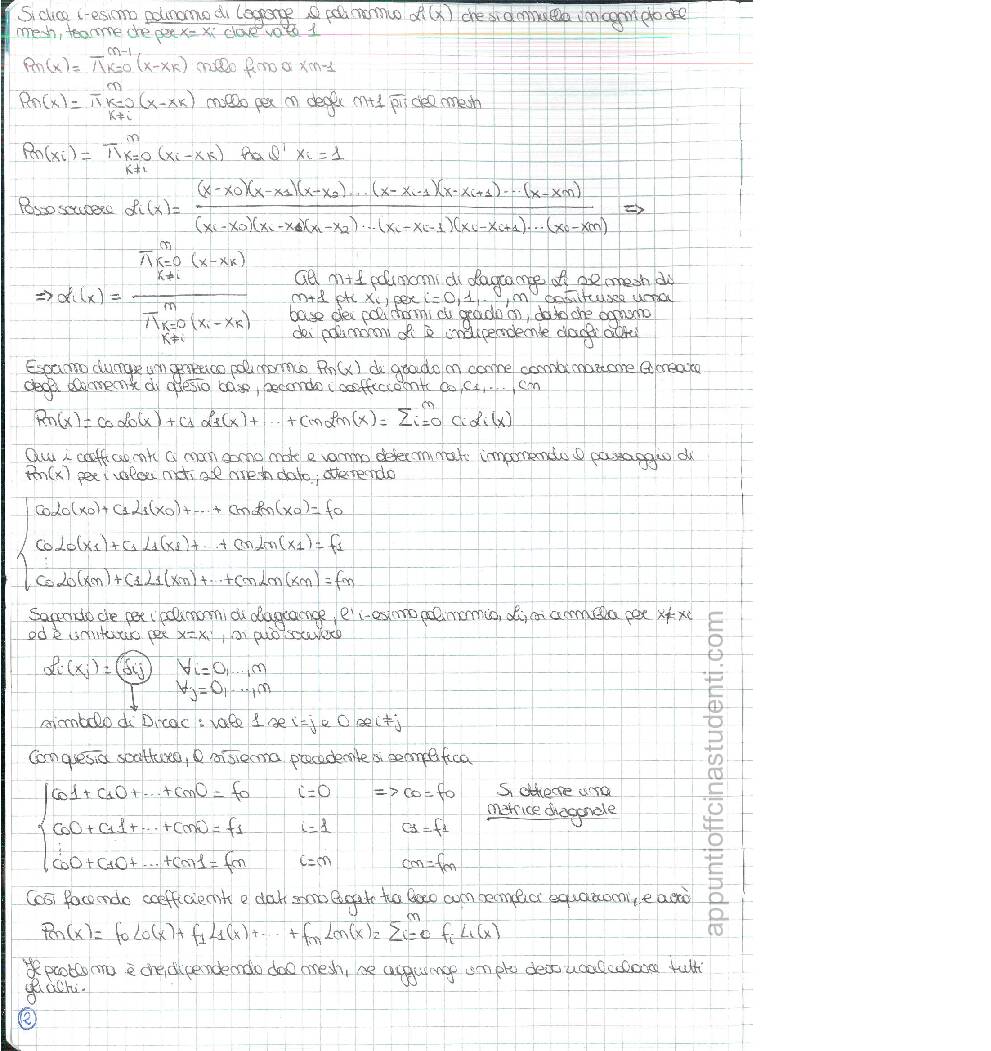 Si dice i-esimo polinomio di Lagrange il polinomio Li(x) che si annulla in ogni pto del
mesh, tranne che per x=xi dove vale 1
Pn(x) = π k=0 n-1 (x-xk) nullo fino a xn-1
Pn(x) = π k=0 k≠i n (x-xk) nullo per n degli n+1 pti del mesh
Pn(xi) = π k=0 k≠i n (xi-xk) xi=1
Posso scrivere Li(x) = (x-x0)(x-x1)(x-x2)...(x-xi-1)(x-xi+1)...(x-xn) / (xi-x0)(xi-x1)(xi-x2)...(xi-xi-1)(xi-xi+1)...(xi-xn) =>
=> Li(x) = π k=0 k≠i n (x-xk) / π k=0 k≠i n (xi-xk)
Gli n+1 polinomi di Lagrange Li sul mesh di
n+1 pti xi, per i=0,1,...,n costituisce una
base dei polinomi di grado n, dato che ognuno
dei polinomi Li è indipendente dagli altri
Esprimo dunque un generico polinomio Pn(x) di grado n come combinazione lineare
degli elementi di questa base, secondo i coefficienti c0, c1, ..., cn
Pn(x) = c0L0(x)+c1L1(x)+...+cnLn(x) = Σi=0 n ciLi(x)
Qui i coefficienti ci non sono noti e vanno determinati imponendo il passaggio di
Pn(x) per i valori noti sul mesh dato, ottenendo
c0L0(x0)+c1L1(x0)+...+cnLn(x0)=f0
c0L0(x1)+c1L1(x1)+...+cnLn(x1)=f1
⋮
c0L0(xn)+c1L1(xn)+...+cnLn(xn)=fn
Sapendo che per i polinomi di Lagrange, l'i-esimo polinomio Li si annulla per x≠xi
ed è unitario per x=xi, si può scrivere
Li(xj) = δij ∀i=0,...,n
∀j=0,...,n
simbolo di Dirac: vale 1 se i=j e 0 se i≠j
Con questa scrittura, il sistema precedente si semplifica
c01+c10+...+cn0=f0 i=0 => c0=f0 Si ottiene una
matrice diagonale
c00+c11+...+cn0=f1 i=1 c1=f1
⋮
c00+c10+...+cn1=fn i=n cn=fn
Così facendo coefficienti e dati sono legati tra loro con semplici equazioni, e avrò
Pn(x) = f0L0(x)+f1L1(x)+...+fnLn(x) = Σi=0 n fiLi(x)
Il problema è che, dipendendo dal mesh, se aggiungo un pto devo ricalcolare tutti
gli altri.
2
appuntioffcinastudenti.com